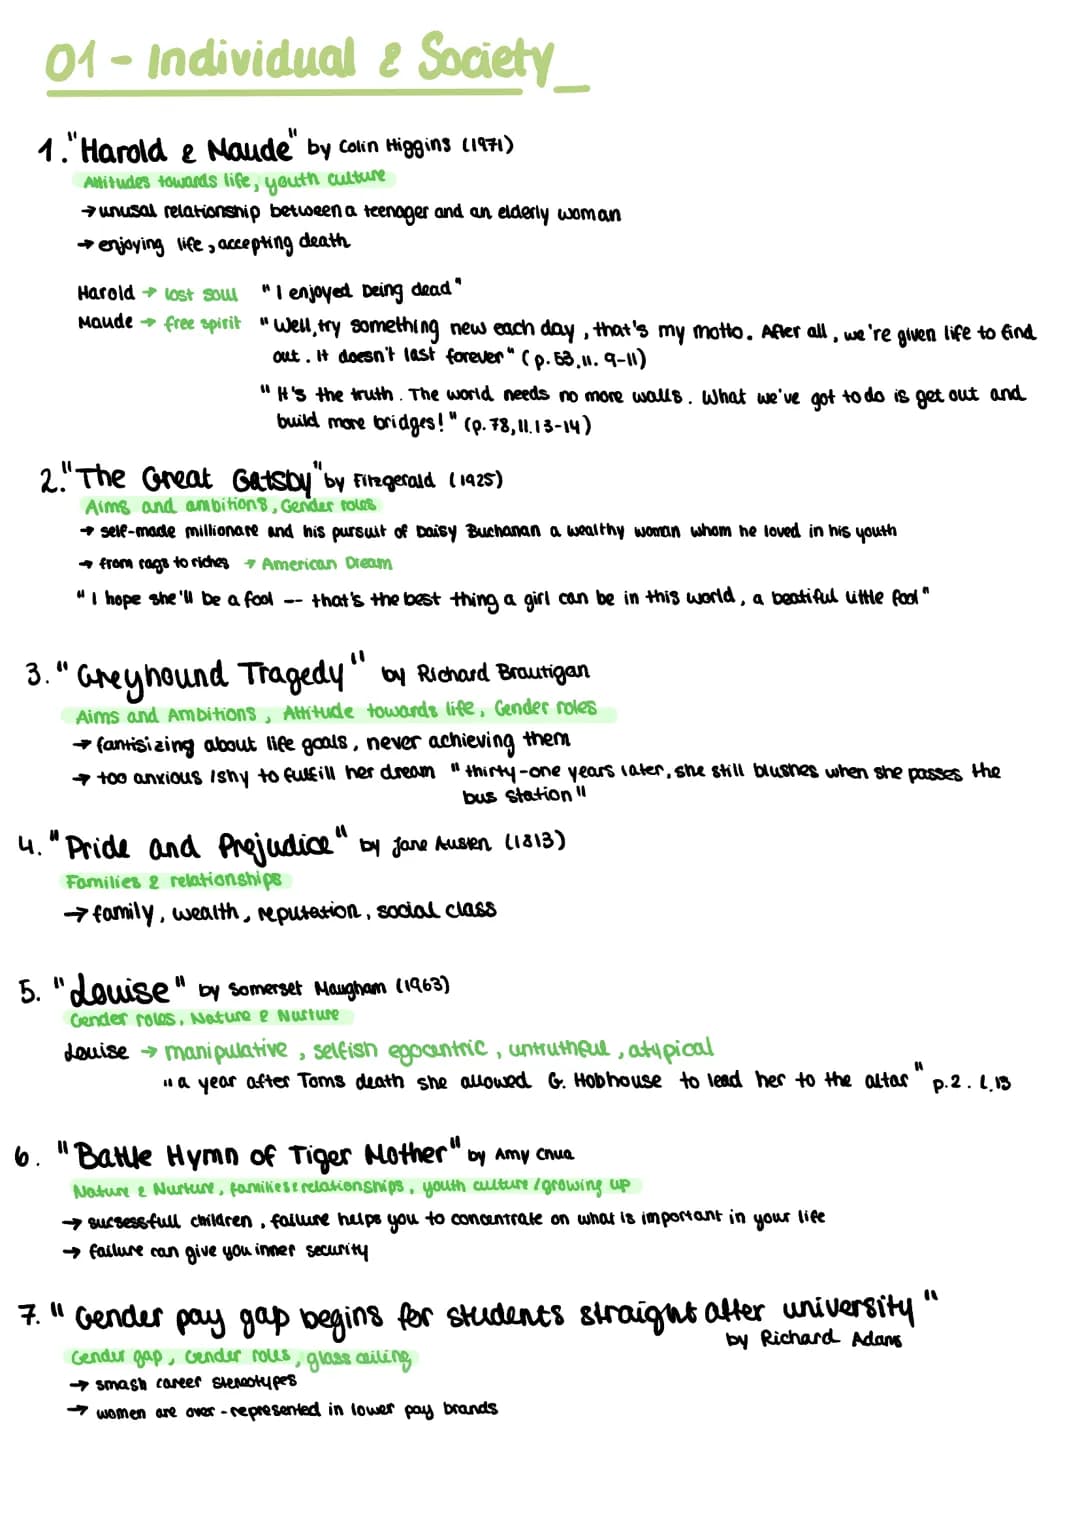 01 - Individual & Society_
1. "Harold & Maude" by Colin Higgins (1971)
Attitudes towards life, youth culture
→ unusal relationship between a teenager and an elderly woman
→ enjoying life, accepting death
Harold → lost soul "I enjoyed being dead"
Maude → free spirit "Well, try something new each day, that's my motto. After all, we're given life to find
out. It doesn't last forever" (p. 53, ll. 9-11)
"It's the truth. The world needs no more walls. What we've got to do is get out and
build more bridges!" (p. 78, ll. 13-14)
2. "The Great Gatsby" by Fitzgerald (1925)
Aims and ambitions, Gender roles
→ self-made millionare and his pursuit of Daisy Buchanan a wealthy woman whom he loved in his youth
→ from rags to riches → American Dream
"I hope she'll be a fool -- that's the best thing a girl can be in this world, a beatiful little fool"
3. "Greyhound Tragedy" by Richard Brautigan
Aims and Ambitions, Attitude towards life, Gender roles
→ fantisizing about life goals, never achieving them
→ too anxious /shy to fulfill her dream "thirty-one years later, she still blushes when she passes the
bus station"
4. "Pride and Prejudice" by Jane Austen (1813)
Families & relationships
→ family, wealth, reputation, social class
5. "Louise" by Somerset Maugham (1963)
Gender roles, Nature & Nurture
Louise → manipulative, selfish egocentric, untruthful, atypical
"a year after Toms death she allowed G. Hobhouse to lead her to the altar" p.2. l.13
6. "Battle Hymn of Tiger Mother" by Amy Chua
Nature & Nurture, families & relationships, youth culture /growing up
→ sucsessfull children, failure helps you to concentrate on what is important in your life
→ failure can give you inner security
7. "Gender pay gap begins for students straight after university"
by Richard Adams
Gender gap, Gender roles, glass ceiling
→ smash career stereotypes
→ women are over-represented in lower pay brands